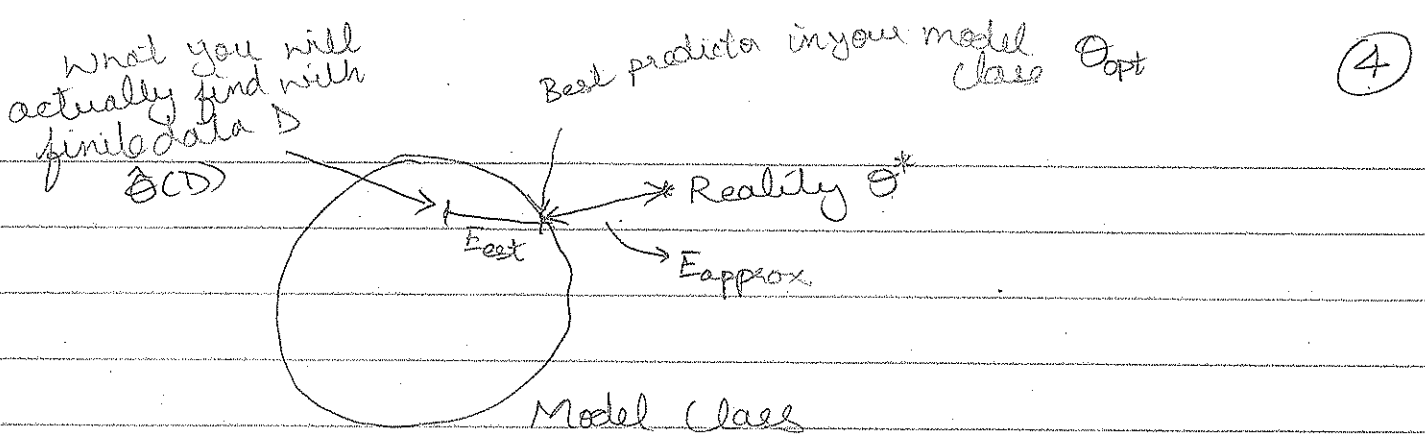 What you will
actually find with
finite data D
θ̂(D)
Best predictor in your model
class θopt
4
Reality θ*
Eest
Eapprox
Model Class